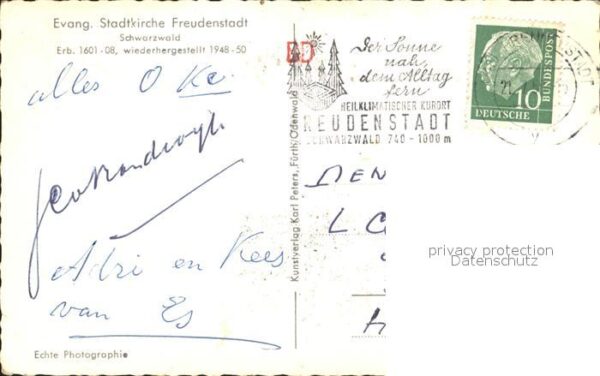 Evang. Stadtkirche Freudenstadt
Schwarzwald
Erb. 1601-08, wiederhergestellt 1948-50
alles O Ke
Adri en Kees
van Es
Echte Photographie
Kunstverlag Karl Peters, Fürth/Odenwald
Der Sonne
nah,
dem Alltag
fern
HEILKLIMATISCHER KURORT
REUDENSTADT
SCHWARZWALD 740-1000 m
10
DEUTSCHE
BUNDESPOST
DEN
L
privacy protection
Datenschutz